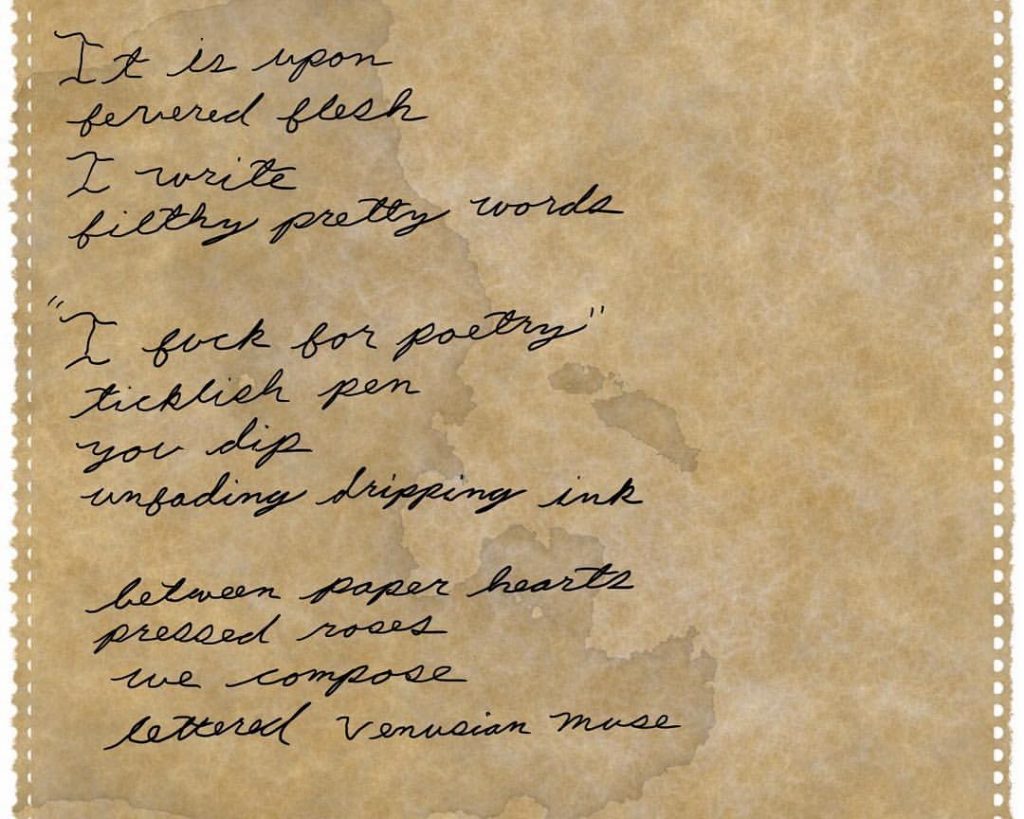 It is upon
fervered flesh
I write
filthy pretty words
"I fuck for poetry"
ticklish pen
you dip
unfading dripping ink
between paper hearts
pressed roses
we compose
lettered Venusian muse